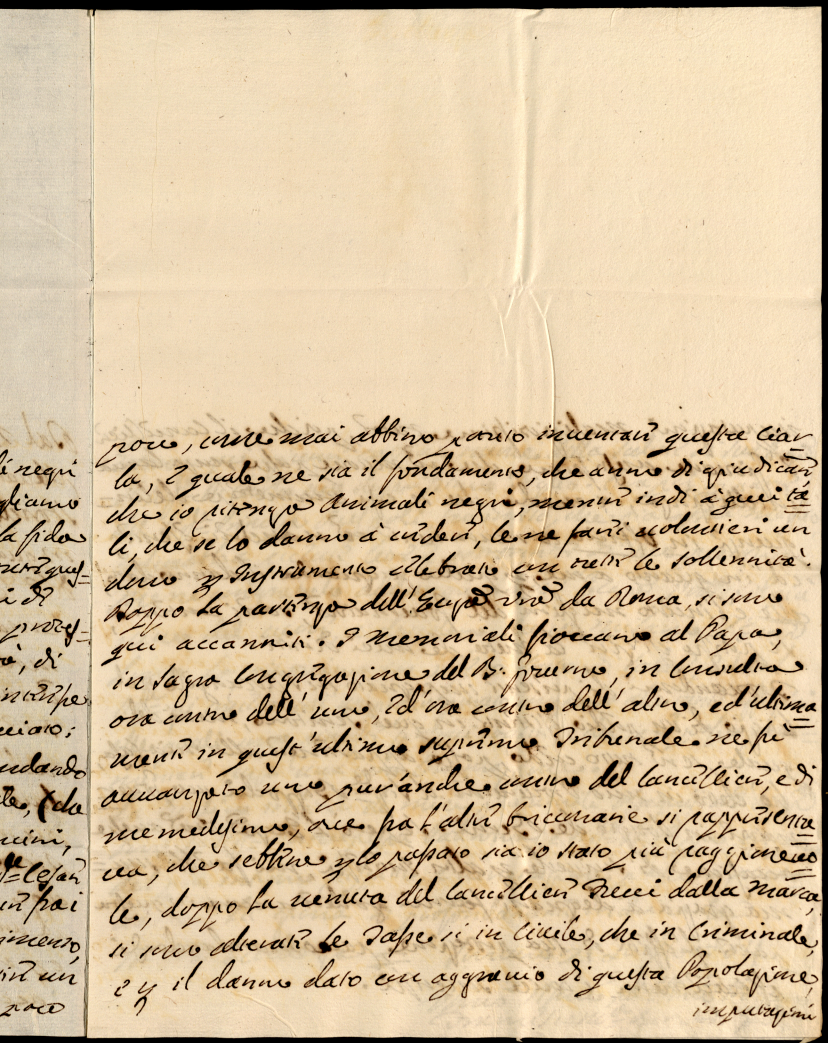 li negri
gliamo
la fida
i di
di
ciato;
andando
che
un fra i
un
poco
poco, come mai abbino potuto inventar questa Ciar
la, e quale ne sia il fondamento, che anno di giudicar,
che io ritengo Animali negri, mentre indi à quei ta=
li, che se lo danno à creder, le ne farei volentieri un
dono per Instrumento celebrato con tutte le sollennità.
Doppo la partenza dell' da Roma, si sono
qui accanniti. I memoriali fioccano al Papa,
in Sagra Congregazione del B. Governo, in Consulta
ora contro dell'uno, ed'ora contro dell'altro, ed'ultima=
mente in quest'ultimo supremo Tribunale ne fù
avvanzato uno pur'anche contro del Cancellier, e di
me medesimo, ove fra l'altre bricconarie si rappresenta=
va, che sebbene per lo passato sia io stato più raggionevo=
le, doppo la venuta del Cancellier Trecci dalla Marca,
si sono alterate le Tasse si in Civile, che in Criminale,
e per il danno dato con aggravio di questa Popolazione,
imputazioni